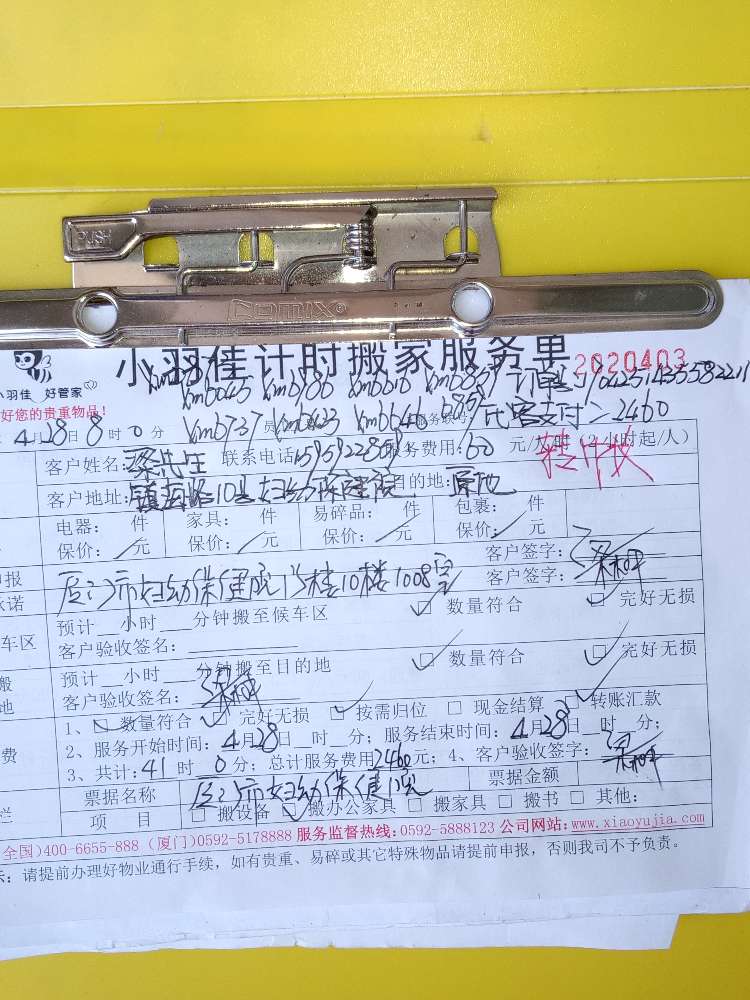 PUSH
COMIX®
小羽佳计时搬家服务单
2020403
小羽佳 好管家
好您的贵重物品!
xmb045 xmb786 xmb616 xmb859 订单号
xmb737 xmb423 xmb646 元客支付:2460
4月28日8时0分
客户姓名: 联系电话 服务费用:60 元/
小时起/人)
转付款
客户地址:镇海路10号妇幼保健院 目的地: 原地
电器: 件 家具: 件 易碎品: 件 包裹: 件
保价: 元 保价: 元 保价: 元 保价: 元
申报
客户签字:
承诺
厦门市妇幼保健院1号楼10楼1008室
客户签字:
预计 小时 分钟搬至候车区 ☑ 数量符合 ☑ 完好无损
车区
客户验收签名:
预计 小时 分钟搬至目的地 ☑ 数量符合 ☑ 完好无损
搬
地
客户验收签名:
1、☑ 数量符合 ☑ 完好无损 ☑ 按需归位 □ 现金结算 ☑ 转账汇款
2、服务开始时间: 4月28日 时 分; 服务结束时间: 4月28日 时 分;
费
3、共计: 41 时 0 分; 总计服务费用2460元; 4、客户验收签字:
票据名称 厦门市妇幼保健院 票据金额
栏
项 目 □ 搬设备 ☑ 搬办公家具 □ 搬家具 □ 搬书 □ 其他:
全国)400-6655-888 (厦门)0592-5178888 服务监督热线:0592-5888123 公司网站:www.xiaoyujia.com
示: 请提前办理好物业通行手续,如有贵重、易碎或其它特殊物品请提前申报,否则我司不予负责。